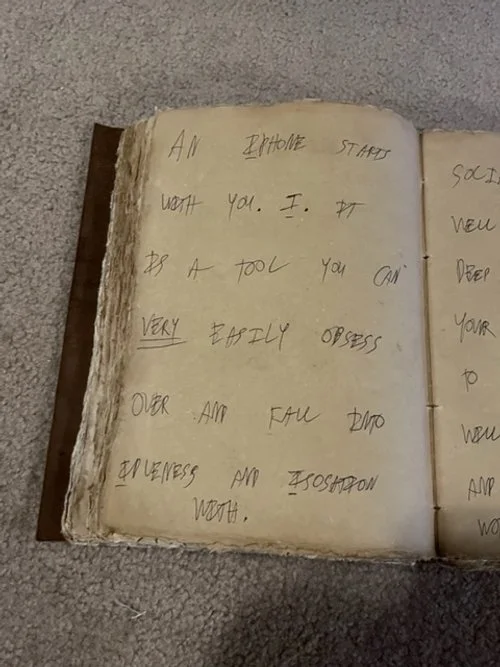 AN IPHONE STARTS
WITH YOU. I. IT
IS A TOOL YOU CAN
VERY EASILY OBSESS
OVER AND FALL INTO
IDLENESS AND ISOSATION
WITH.
WELL
DEEP
YOUR
TO
WELL
AND